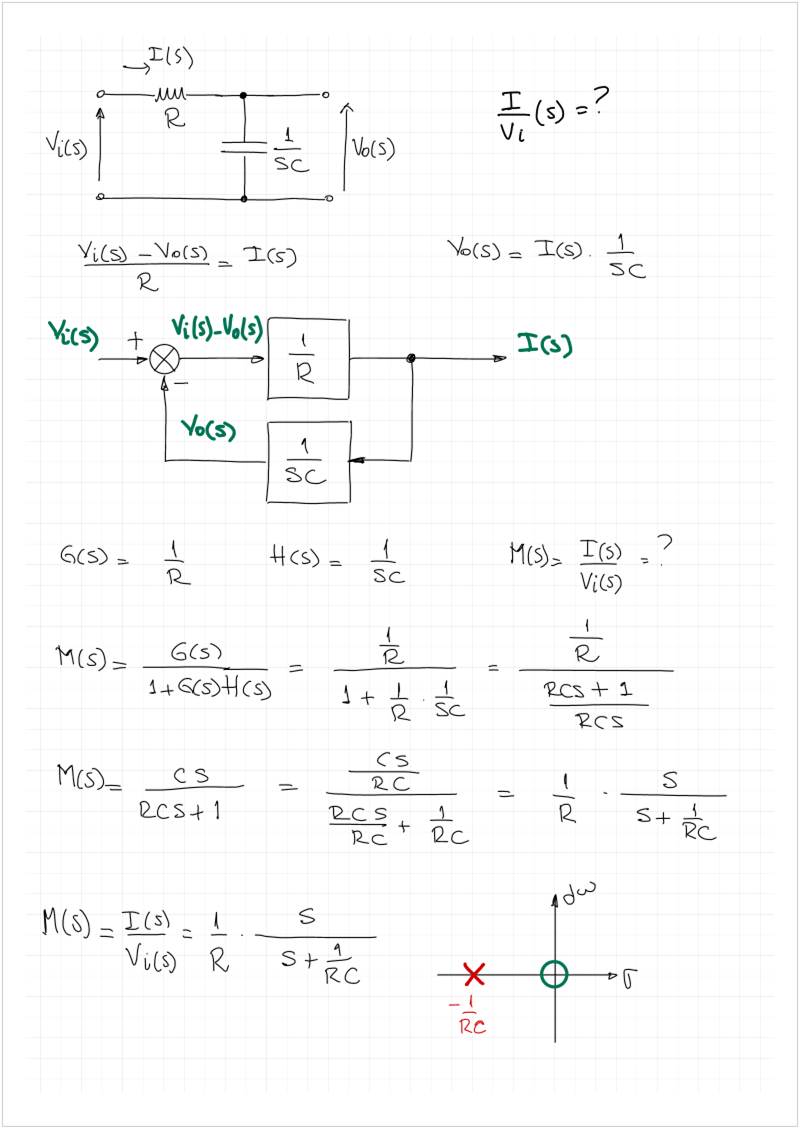 → I(s)
R
Vi(s)
1/SC
Vo(s)
I/Vi (s) = ?
(Vi(s) - Vo(s))/R = I(s)
Vo(s) = I(s) · 1/SC
Vi(s)
+
Vi(s)-Vo(s)
1/R
I(s)
-
Vo(s)
1/SC
G(s) = 1/R
H(s) = 1/SC
M(s) = I(s)/Vi(s) = ?
M(s) = G(s)/(1+G(s)H(s)) = (1/R)/(1 + 1/R · 1/SC) = (1/R)/((RCS + 1)/RCS)
M(s) = CS/(RCS+1) = (CS/RC)/(RCS/RC + 1/RC) = 1/R · S/(S + 1/RC)
M(s) = I(s)/Vi(s) = 1/R · S/(S + 1/RC)
jω
σ
-1/RC